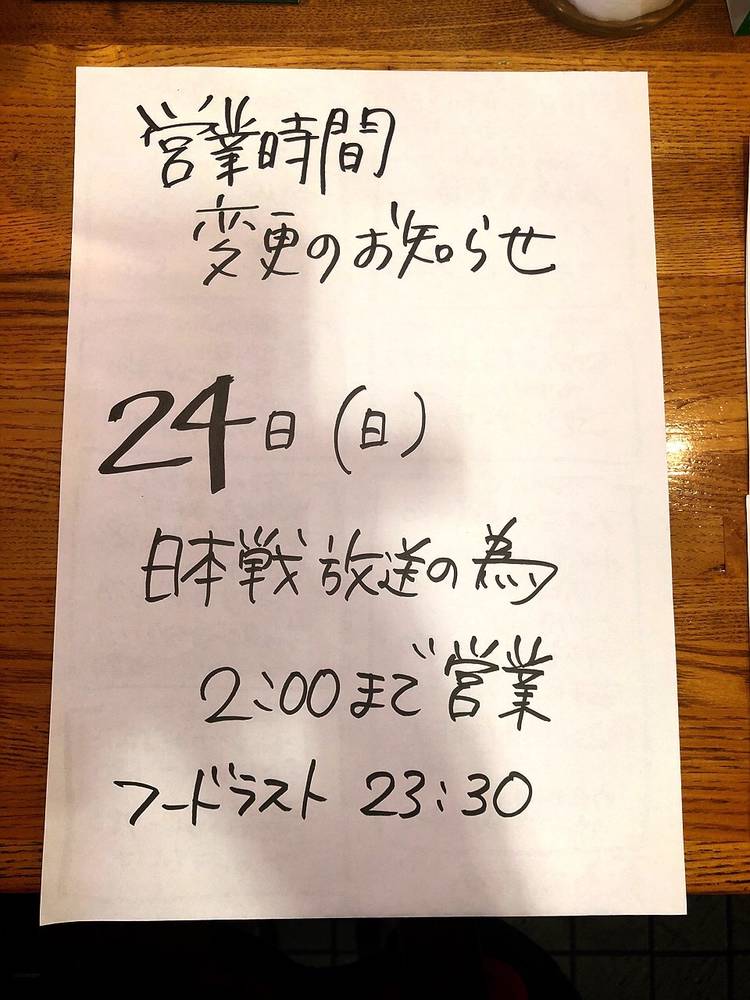 営業時間
変更のお知らせ
24日(日)
日本戦放送の為
2:00まで営業
フードラスト 23:30